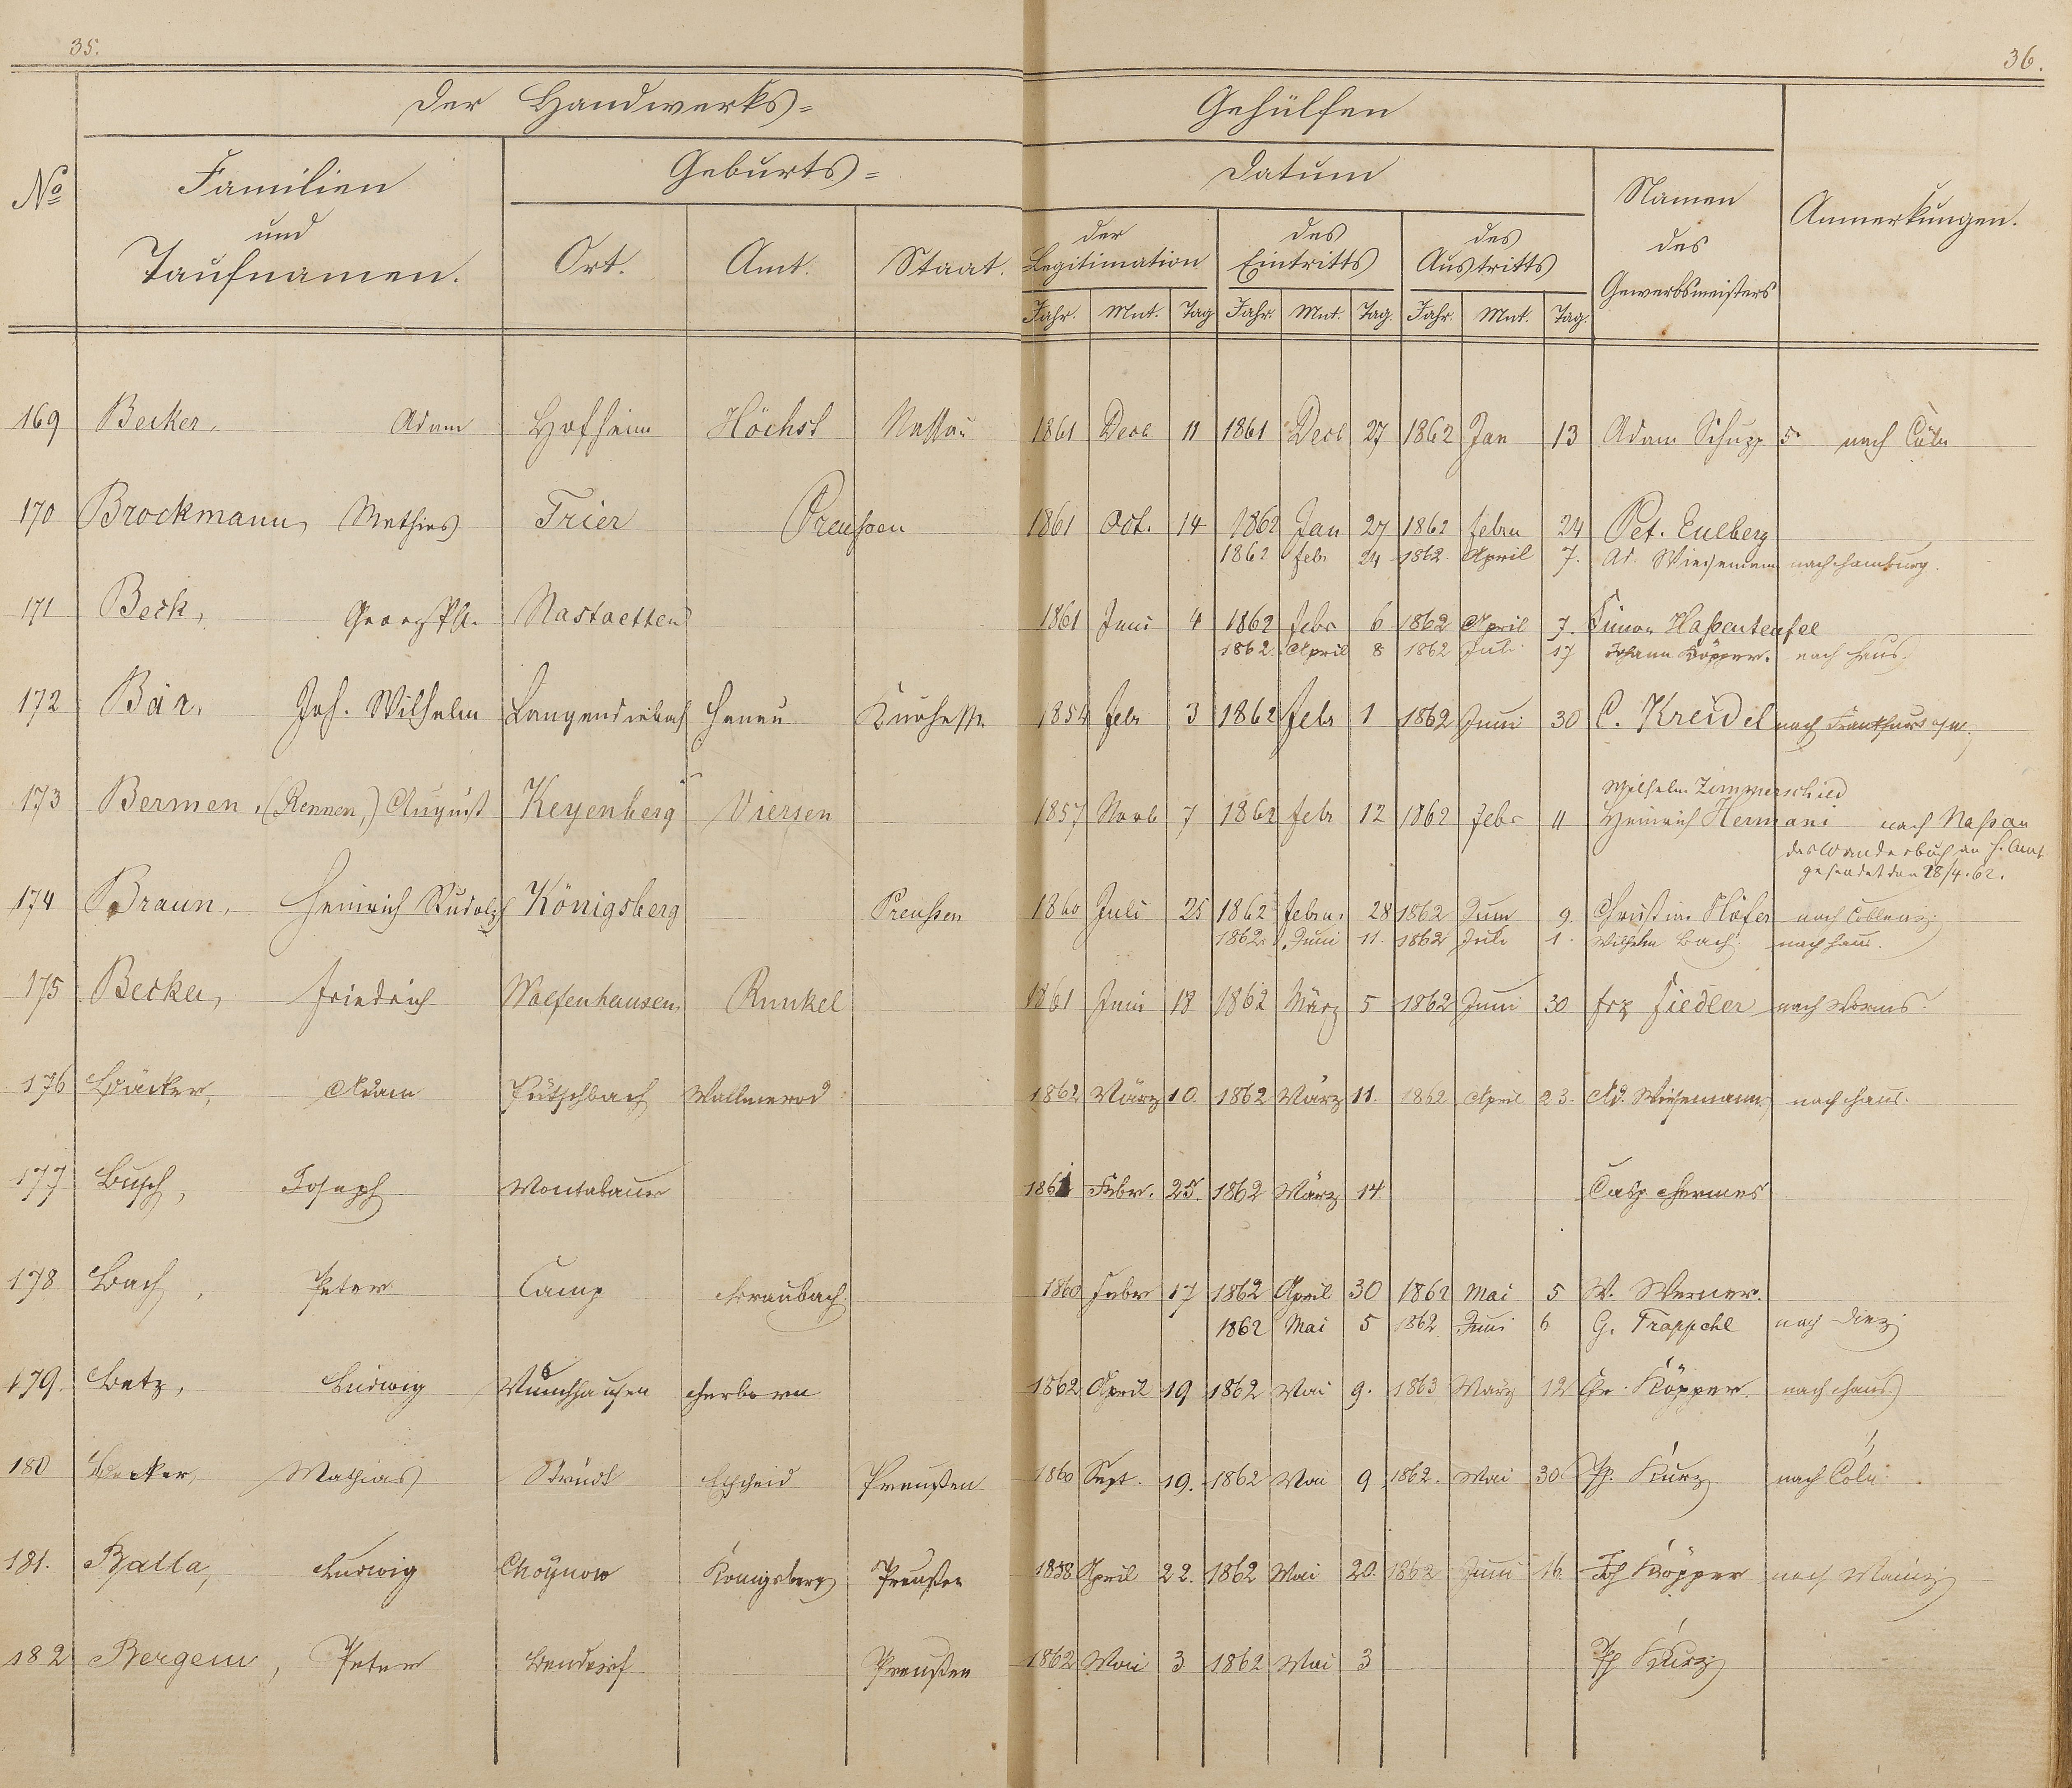 35.
36.
Der Handwerks=
Gehülfen
No
Familien
und
Taufnamen.
Geburts=
Ort.
Amt.
Staat.
Datum
der
Legitimation
des
Eintritts
des
Austritts
Jahr. Mnt. Tag Jahr. Mnt. Tag. Jahr. Mnt. Tag.
Namen
des
Gewerbsmeisters
Anmerkungen.
169 Becker, Adam Hofheim Höchst Nassau 1861 Decb 11 1861 Decb 27 1862 Jan 13 Adam Schupp nach Cöln
170 Brockmann, Mathias Trier Preussen 1861 Oct. 14 1862 Jan 27 1862 Febru 24 Pet. Eulberg
1862 Febr 24 1862 April 7. Ad. Wiesemann nach Hamburg.
171 Beck, Georg Ph. Nastaetten 1861 Juni 4 1862 Febr 6 1862 April 7. Simon Haßenteufel
1862 April 8 1862 Juli 17 Johann Köpper. nach Haus.
172 Bär, Joh. Wilhelm Langendiebach Hanau Kurhess. 1854 Febr 3 1862 Febr 1 1862 Juni 30 C. Kreidel nach Frankfurt a/M.
Wilhelm Zimmerschied
173 Bermen, (Rennen,) August Keyenberg Viersen 1857 Novb 7 1862 Febr 12 1862 Febr 11 Heinrich Hermani nach Naßau
das Wanderbuch an H. Amt
gesendet den 28/4.62.
174 Braun, Heinrich Rudolph Königsberg Preußen 1860 Juli 25 1862 Febru. 28 1862 Juni 9. Christian Höfer nach Coblenz.
1862 Juni 11. 1862 Juli 1. Wilhelm Bach. nach Haus.
175 Becker, Friedrich Wolfenhausen Runkel 1861 Juni 18 1862 März 5 1862 Juni 30 Frz Fiedler nach Worms.
176 Bäcker, Adam Pütschbach Wallmerod 1862 März 10. 1862 März 11. 1862 April 23. Ad. Wiesemann, nach Haus.
177 Busch, Joseph Montabaur 1861 Febr. 25. 1862 März 14 Casp Hermes
178 Bach, Peter Camp Braubach 1860 Febr 17 1862 April 30 1862 Mai 5 W. Werner.
1862 Mai 5 1862 Juni 6 G. Trappehl nach Diez
179. Betz, Ludwig Münchhausen Herborn 1862 April 19 1862 Mai 9. 1863 März 12 Chr. Köpper. nach Haus.
180 Becker, Mathias Strüdt Preußen 1860 Sept. 19. 1862 Mai 9 1862. Mai 30 Ph. Kurz nach Cöln.
181. Balla, Ludwig Choynow Königsberg Preußen 1858 April 22. 1862 Mai 20. 1862 Juni 16. Joh Köpper nach Mainz
182 Bergem, Peter Bendorf Preußen 1862 Mai 3 1862 Mai 3 Ph Kurz